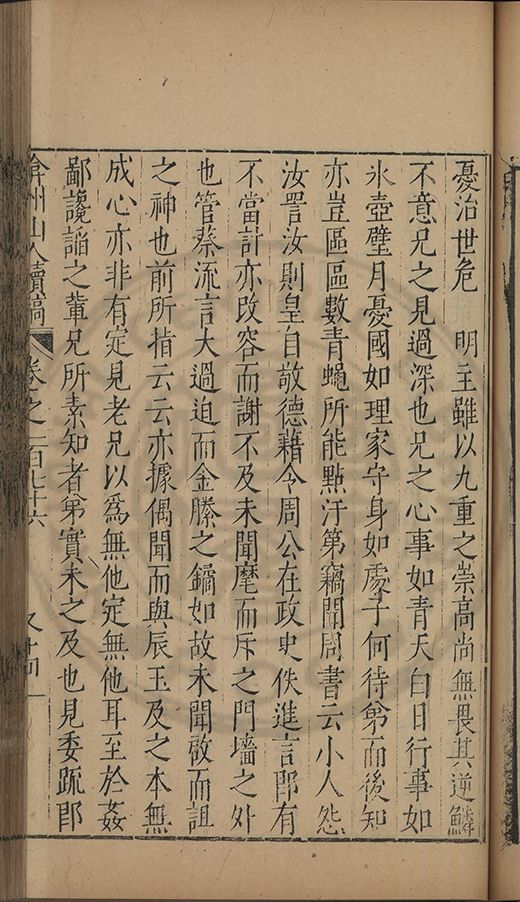 憂治世危　明主雖以九重之崇高尚無畏其逆鱗
不意兄之見過深也兄之心事如青天白日行事如
氷壺璧月憂國如理家守身如處子何待弟而後知
亦豈區區數青蠅所能點汙第竊聞周書云小人怨
汝詈汝則皇自敬德藉令周公在政史佚進言卽有
不當計亦改容而謝不及未聞麾而斥之門墻之外
也管蔡流言大過迫而金縢之鐍如故未聞啟而詛
之神也前所指云云亦據偶聞而與辰玉及之本無
成心亦非有定見老兄以爲無他定無他耳至於姦
鄙讒謟之輩兄所素知者弟實未之及也見委疏卽
弇州山人續稿 卷之一百七十六 又十四